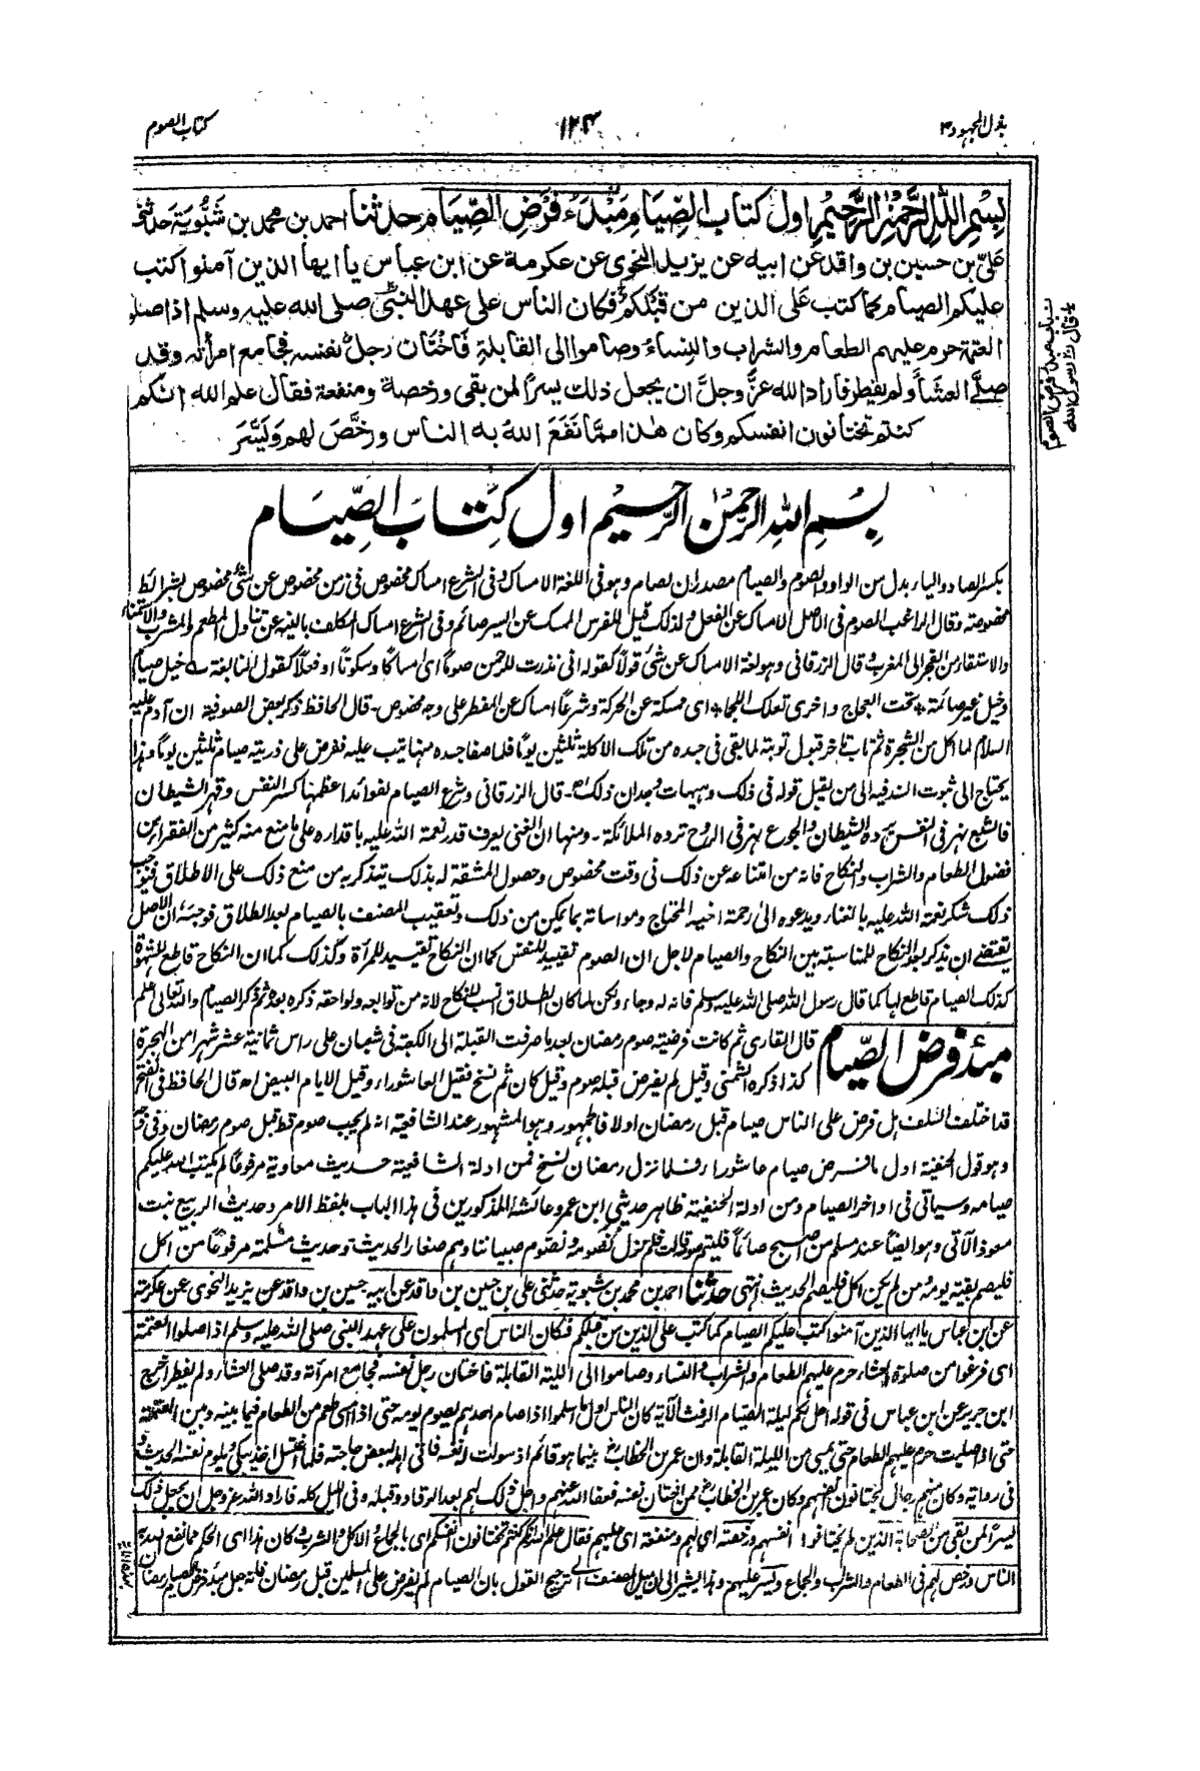 بذل المجهود ٣
١٢٣
كتاب الصوم
بِسْمِ اللهِ الرَّحْمٰنِ الرَّحِيْمِ اول كتاب الصِّيَامِ مَبْدَءُ فَرْضِ الصِّيَامِ حدثنا احمد بن محمد بن شَبُّوْيَةَ حدثنى
عَلىّ بن حسين بن واقد عن ابيه عن يزيد النحوى عن عكرمة عن ابن عباس يا ايها الذين آمنوا كتب
عليكم الصيام كما كتب عَلَى الذين من قبلكم فكان الناس على عهد النبى صلى الله عليه وسلم اذا صلوا
العتمة حرم عليهم الطعام والشراب والنساء وصاموا الى القابلة فَاخْتَان رجلٌ نفسه فجامع امرأته وقد
صلّى العشاء ولم يفطر فاراد الله عزَّ وجلَّ ان يجعل ذلك يسرًا لمن بقى ورخصة ومنفعة فقال علم الله انكم
كنتم تختانون انفسكم وكان هذا مِمَّا نَفَعَ اللهُ به الناس ورخَّصَ لهم وَيَسَّرَ
بِسْمِ اللهِ الرحمٰن الرَّحيم اول كِتَابِ الصِّيَام
بكسر الصاد والياء بدل من الواو والصوم والصيام مصدران لصام وهو فى اللغة الامساك وفى الشرع امساك مخصوص فى زمن مخصوص عن شئ مخصوص بشرائط
مخصوصة وقال الراغب الصوم فى الاصل الامساك عن الفعل ولذلك قيل للفرس الممسك عن السير صائم وفى الشرع امساك المكلف بالنية عن تناول المطعم والمشرب والاستمناء
والاستقاء من الفجر الى المغرب وقال الزرقانى وهو لغة الامساك عن شئ قولًا كقوله انى نذرت للرحمن صومًا اى امساكًا وسكوتًا او فعلًا كقول النابغة خيل صيام
وخيل غير صائمة تحت العجاج واخرى تعلك اللجما اى ممسكة عن الحركة وشرعًا امساك عن المفطر على وجه مخصوص۔ قال الحافظ ذكر بعض الصوفية ان آدم عليه
السلام لما اكل من الشجرة ثم تاب تأخر قبول توبته لما بقى فى جسده من تلك الاكلة ثلثين يومًا فلما صفا جسده منها تيب عليه ففرض على ذريته صيام ثلثين يومًا وهذا
يحتاج الى ثبوت السند فيه الى من يقبل قوله فى ذلك وهيهات وجدان ذلك اھ۔ قال الزرقانى وشرع الصيام لفوائد اعظمها كسر النفس وقهر الشيطان
فالشبع نهر فى النفس يرده الشيطان والجوع نهر فى الروح ترده الملائكة۔ ومنها ان الغنى يعرف قدر نعمة الله عليه باقداره على ما منع منه كثير من الفقراء من
فضول الطعام والشراب والنكاح فانه من امتناعه عن ذلك فى وقت مخصوص وحصول المشقة له بذلك يتذكر به من منع ذلك على الاطلاق فيوجب
ذلك شكر نعمة الله عليه بالغناء ويدعوه الى رحمة اخيه المحتاج ومواساته بما يمكن من ذلك وتعقيب المصنف بالصيام بعد الطلاق فوجهه ان الاصل
يقتضى ان يذكر بعد النكاح للمناسبة بين النكاح والصيام لاجل ان الصوم تقييد للنفس كما ان النكاح تقييد للمرأة وكذلك كما ان النكاح قاطع للشهوة
كذلك الصيام قاطع لها كما قال رسول الله صلى الله عليه وسلم فانه له وجاء ولكن لما كان الطلاق انسب للنكاح لانه من توابعه ولواحقه ذكره بعده ثم ذكر الصيام والله تعالى اعلم
مبدء فرض الصيام قال القارى ثم كانت فرضية صوم رمضان بعد ما صرفت القبلة الى الكعبة فى شعبان على راس ثمانية عشر شهرا من الهجرة
كذا ذكره الشمنى وقيل لم يفرض قبله صوم وقيل كان ثم نسخ فقيل العاشوراء وقيل الايام البيض اھ قال الحافظ فى الفتح
قد اختلف السلف هل فرض على الناس صيام قبل رمضان اولا فالجمهور وهو المشهور عند الشافعية انه لم يجب صوم قط قبل صوم رمضان وفى وجه
وهو قول الحنفية اول ما فرض صيام عاشوراء فلما نزل رمضان نسخ فمن ادلة الشافعية حديث معاوية مرفوعًا لم يكتب الله عليكم
صيامه وسيأتى فى اواخر الصيام ومن ادلة الحنفية ظاهر حديثى ابن عمر وعائشة المذكورين فى هذا الباب بلفظ الامر وحديث الربيع بنت
معوذ الآتى وهو ايضًا عند مسلم من اصبح صائمًا فليتم صومه قالت فلم نزل نصومه ونصوم صبياننا وهم صغار الحديث وحديث سلمة مرفوعًا من اكل
فليصم بقية يومه ومن لم يكن اكل فليصم الحديث انتهى حدثنا احمد بن محمد بن شبوية حدثنى على بن حسين بن واقد عن ابيه حسين بن واقد عن يزيد النحوى عن عكرمة
عن ابن عباس يا ايها الذين آمنوا كتب عليكم الصيام كما كتب على الذين من قبلكم فكان الناس اى المسلمون على عهد النبى صلى الله عليه وسلم اذا صلوا العتمة
اى فرغوا من صلوة العشاء حرم عليهم الطعام والشراب والنساء وصاموا الى الليلة القابلة فاختان رجل نفسه فجامع امرأته وقد صلى العشاء ولم يفطر اخرج
ابن جرير عن ابن عباس فى قوله احل لكم ليلة الصيام الرفث الآية كان الناس اول ما اسلموا اذا صام احدهم يصوم يومه حتى اذا امسى طعم من الطعام فيما بينه وبين العتمة
حتى اذا صليت حرم عليهم الطعام حتى يمسى من الليلة القابلة وان عمر بن الخطاب بينما هو قائم اذ سولت له نفسه فاتى اهله لبعض حاجته فلما اغتسل اخذ يبكى ويلوم نفسه الحديث و
فى رواية وكان منهم رجال يختانون انفسهم وكان عمر بن الخطاب ممن اختان نفسه فعفا الله عنهم واحل ذلك لهم بعد الرقاد وقبله وفى الليل كله فاراد الله عز وجل ان يجعل ذلك
يسرا لمن بقى من الصحابة الذين لم يختانوا انفسهم ورخصة اى لهم ومنفعة اى عليهم فقال علم الله انكم كنتم تختانون انفسكم اى بالجماع والاكل والشرب وكان هذا اى الحكم مما نفع الله به
الناس ورخص لهم فى الطعام والشراب والجماع ويسر عليهم وهذا يشير الى ان ميل المصنف الى ترجيح القول بان الصيام لم يفرض على المسلمين قبل رمضان فانه جعل مبدء فرض الصيام رمضان